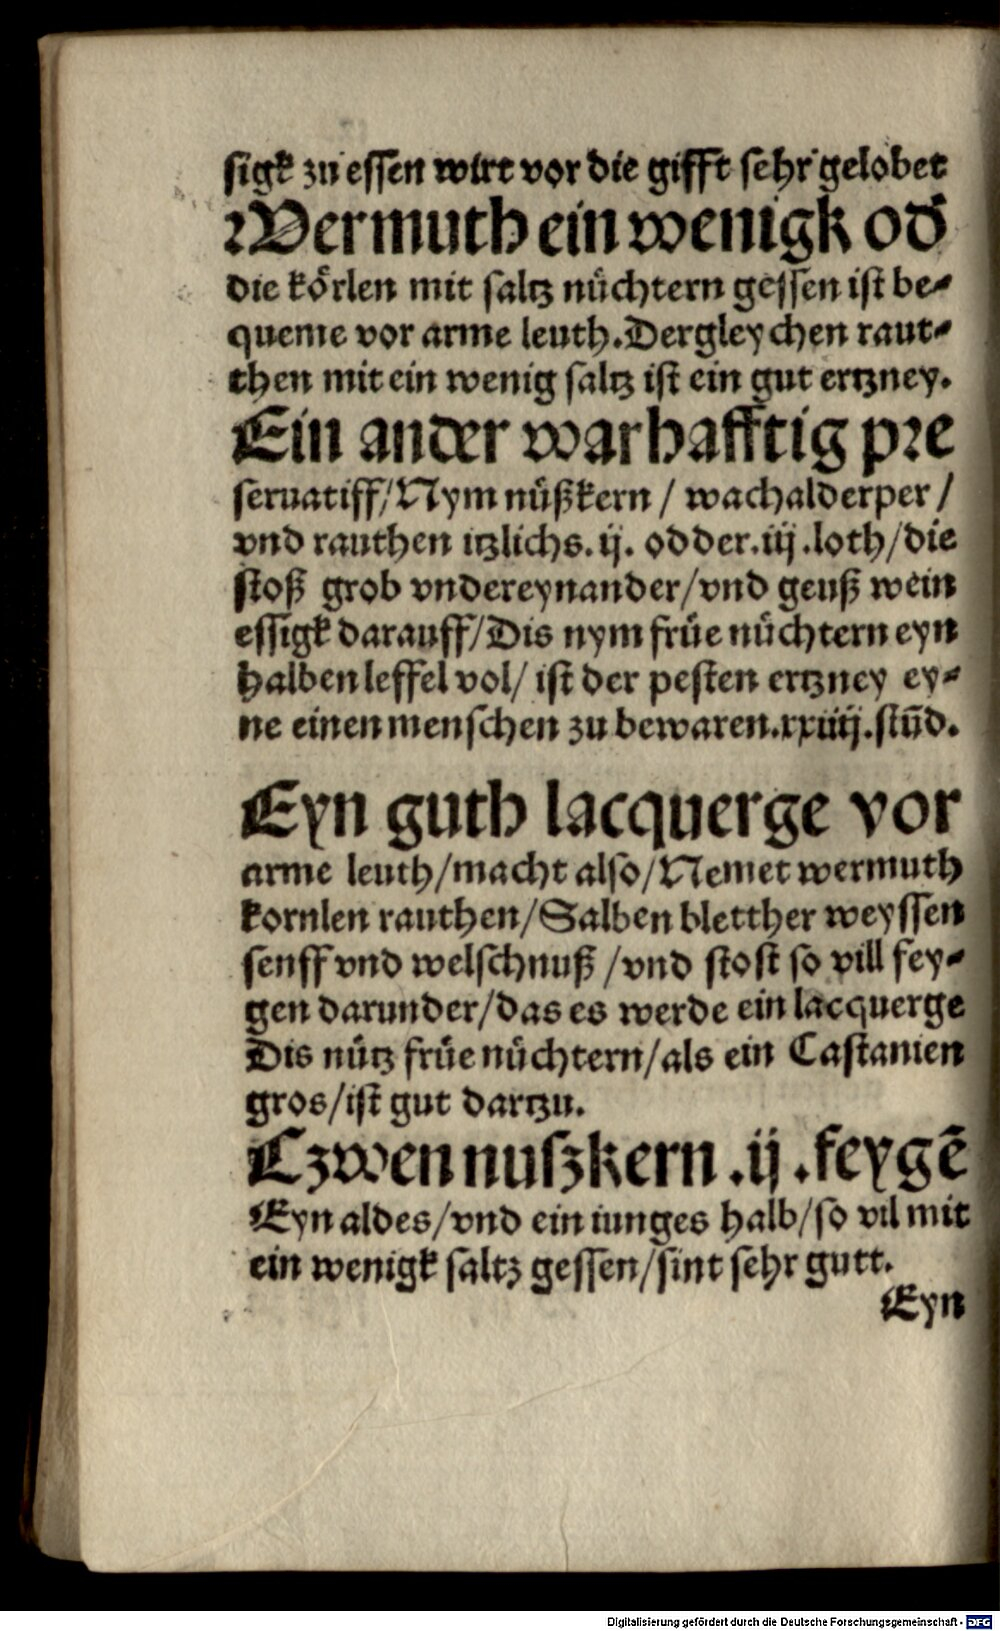 sigk zu essen wirt vor die gifft sehr gelobet
Wermuth ein wenigk od̕
die koͤrlen mit saltz nuͤchtern gessen ist be-
queme vor arme leuth. Dergleychen raut-
then mit ein wenig saltz ist ein gut ertzney.
Ein ander warhafftig pre
seruatiff/ Nym nuͤßkern / wachalderper /
vnd rauthen itzlichs. ij. odder. iij. loth/ die
stoß grob vndereynander/ vnd geuß wein
essigk darauff/ Dis nym fruͤe nuͤchtern eyn
halben leffel vol/ ist der pesten ertzney ey-
ne einen menschen zu bewaren. xxiiij. stūd.
Eyn guth lacquerge vor
arme leuth/ macht also/ Nemet wermuth
kornlen rauthen/ Salben bletther weyssen
senff vnd welschnuß / vnd stost so vill fey-
gen darunder/ das es werde ein lacquerge
Dis nuͤtz fruͤe nuͤchtern/ als ein Castanien
gros/ ist gut dartzu.
Czwen nuszkern .ij. feygē
Eyn aldes/ vnd ein iunges halb/ so vil mit
ein wenigk saltz gessen/ sint sehr gutt.
Eyn
Digitalisierung gefördert durch die Deutsche Forschungsgemeinschaft - DFG